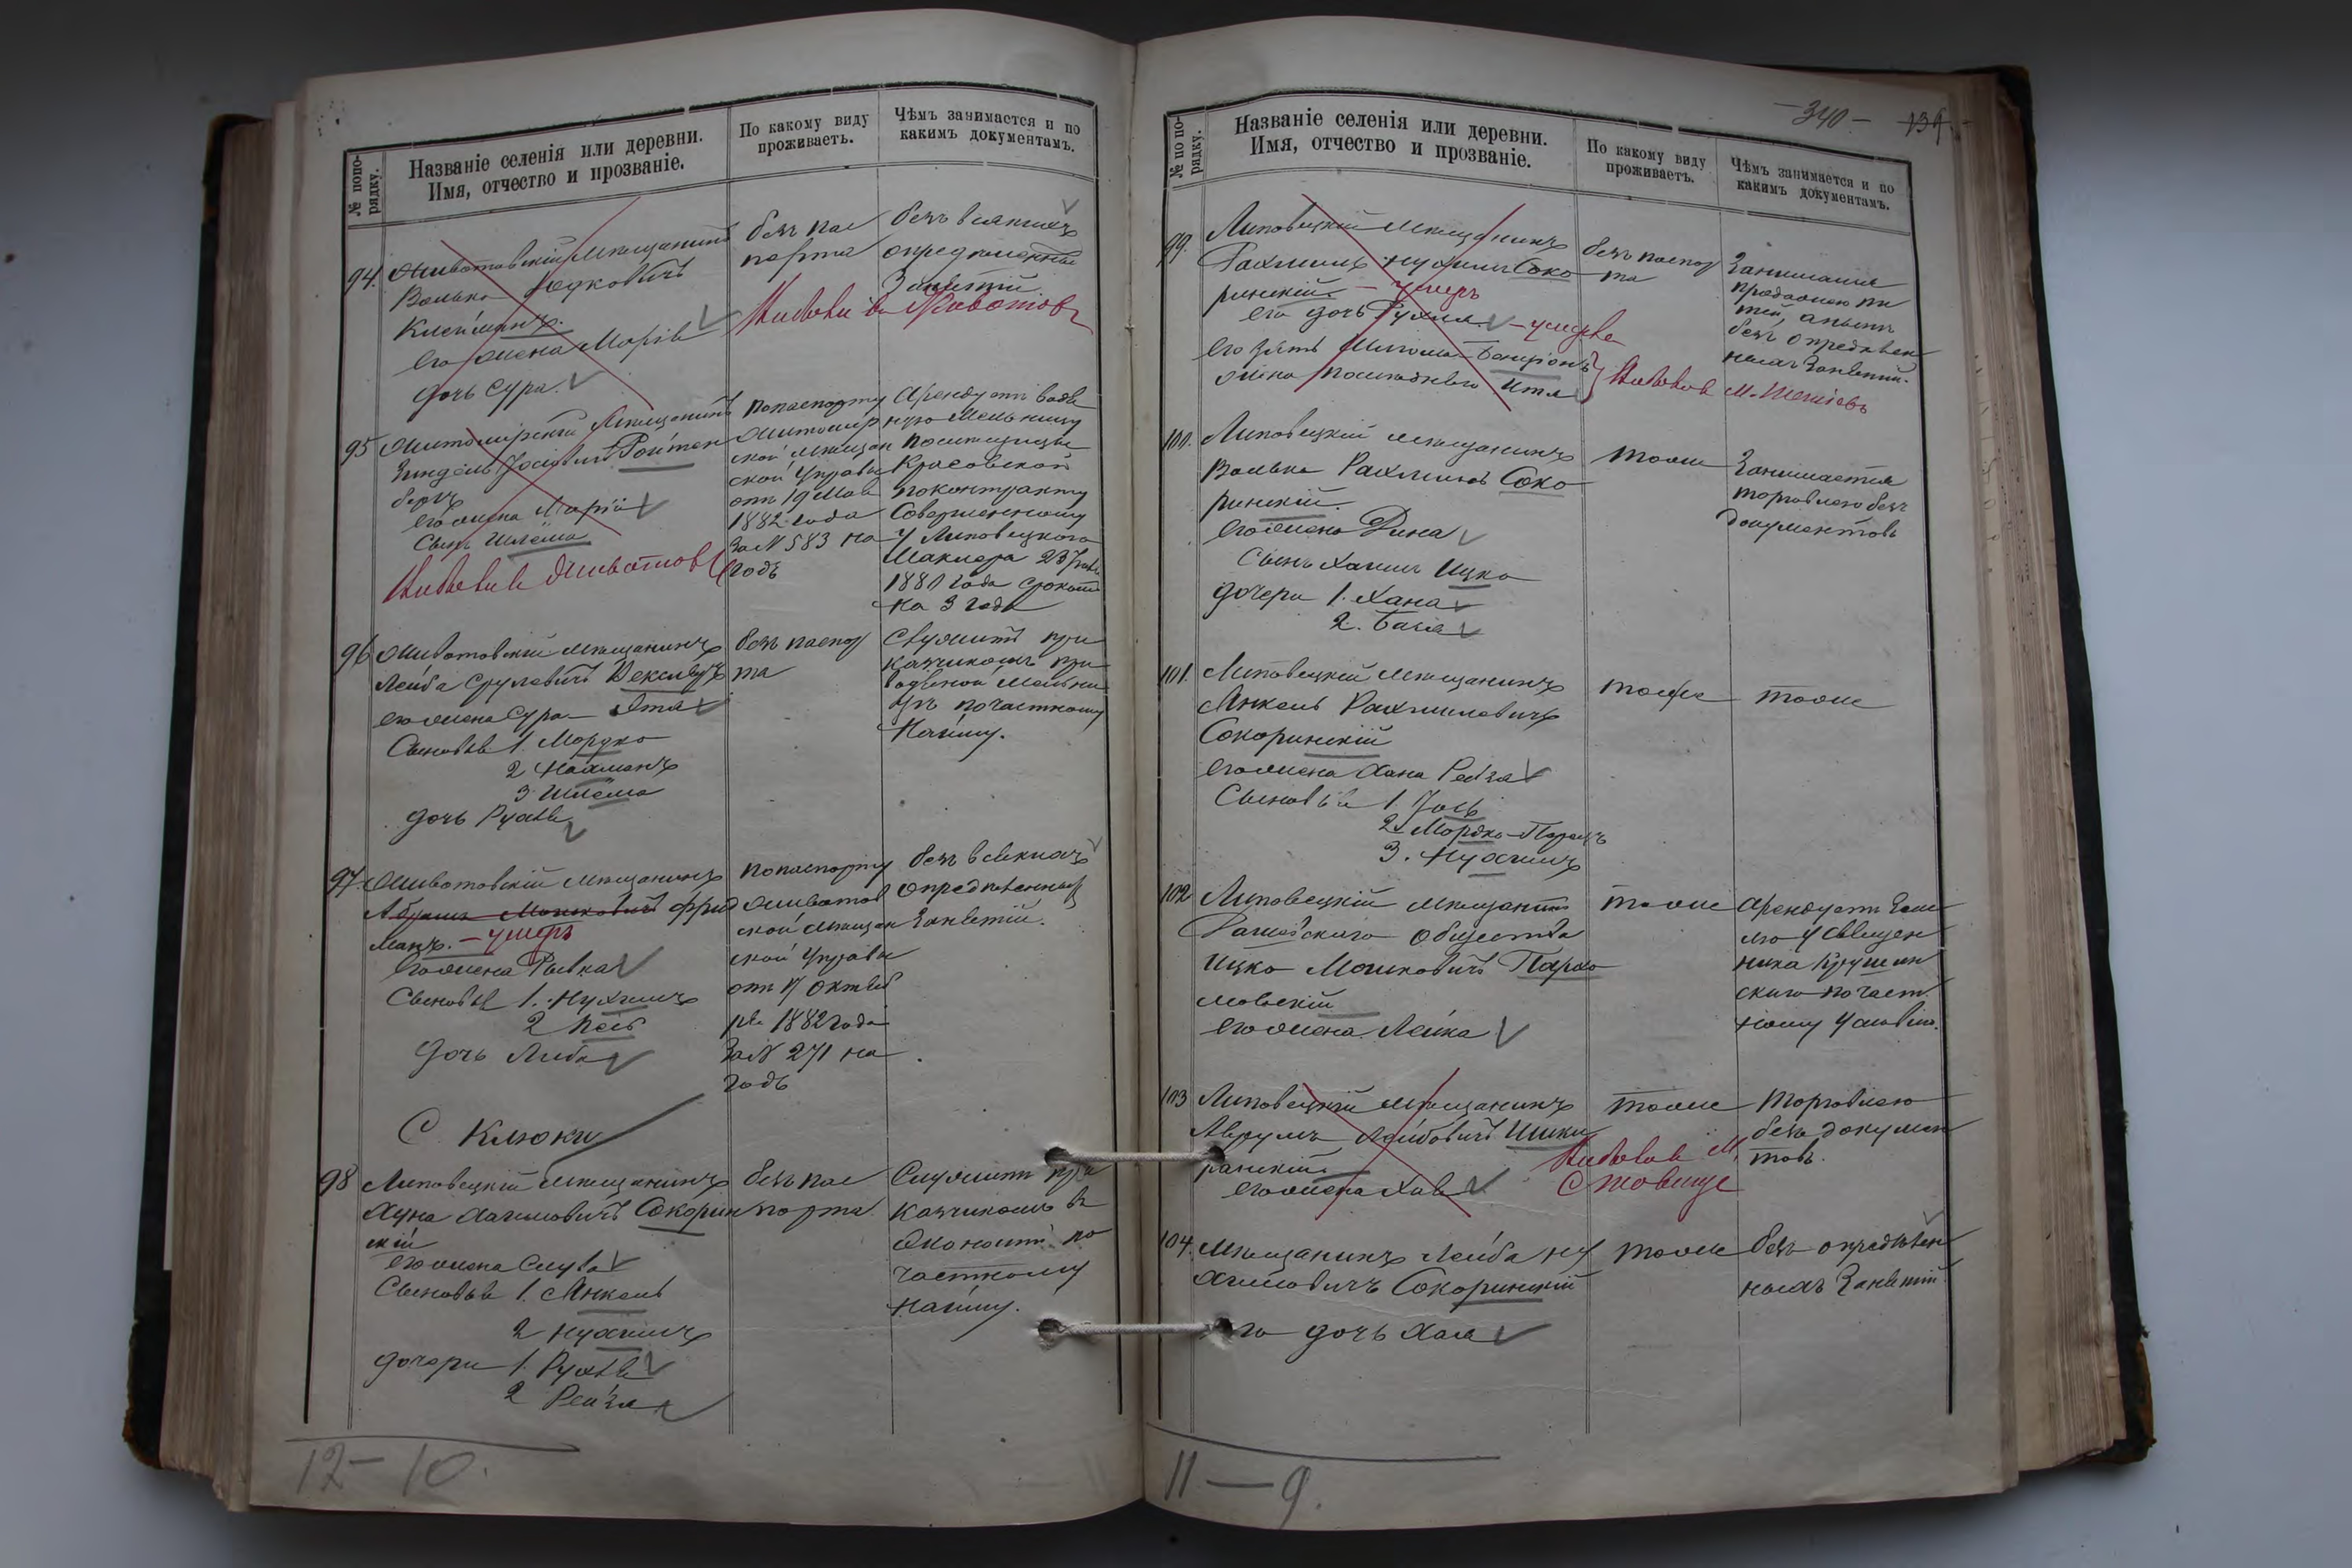 № попо-
рядку.
Названіе селенія или деревни.
Имя, отчество и прозваніе.
По какому виду
проживаетъ.
Чѣмъ занимается и по
какимъ документамъ.
94. Животовскій мѣщанинъ
Волько
Клейманъ.
его жена Марія
дочь Сура.
безъ пас
порта
безъ всякихъ
опредѣленныхъ
Занятій.
Выбыли въ Животовъ
95 Житомірскій мѣщанинъ
Зиндель Іосіевичъ Ройтен
бергъ
его жена Марія
Сынъ Шлема
Выбыли въ Животовъ
по паспорту
Житомір
ской мѣщан
ской Управы
отъ 19 Мая
1882 года
За N 583 на
годъ
Арендуетъ водя
ную мельницу
помѣщицы
Красовской
по контракту
Совершенному
у Липовецкого
Маклера 23
1880 года срокомъ
на 3 года
96 Животовскій мѣщанинъ
Лейба Срулевичъ
его жена Сура Этя
Сыновья 1. Мордко
2 Нахманъ
3 Шлема
дочь Рухля
безъ паспор
та
Служитъ при
казчикомъ при
водяной мельни
цѣ по частному
Найму.
97. Животовскій мѣщанинъ
Абрумъ Мошковичъ Фрид
манъ. – умеръ
его жена Рывка
Сыновья 1. Нухимъ
2
Дочь Либа
по паспорту
Животов
ской мѣщан
ской Управы
отъ 17 Октяб
ря 1882 года
За N 271 на
годъ
безъ всякихъ
опредѣленныхъ
Занятій.
С. Клюки
98 Липовецкій мѣщанинъ
Хуна Хаимовичъ Сокорин
скій
его жена
Сыновья 1. Янкель
2 Нухимъ
дочери 1. Рухля
2 Рейзя
безъ пас
порта
Служитъ при
казчикомъ въ
Экономіи по
частному
Найму.
12 – 10.
– 340 –
139
№ по по-
рядку.
Названіе селенія или деревни.
Имя, отчество и прозваніе.
По какому виду
проживаетъ.
Чѣмъ занимается и по
какимъ документамъ.
99. Липовецкій мѣщанинъ
Рахмиль Нухимъ Соко
ринскій. – умеръ
его дочь Рухля. – умерла
его зять Шлёма-Бенціонъ
жена послѣдняго Итя
безъ паспор
та
Занимался
продажею пи
тей, а нынѣ
безъ опредѣлен
ныхъ Занятій.
Выбыли в м.
100. Липовецкій мѣщанинъ
Волько Рахмилевъ Соко
ринскій.
его жена Дина
Сынъ Хаимъ Ицко
дочери 1. Хана
2. Бася
тоже
Занимается
торговлею безъ
документовъ
101. Липовецкій мѣщанинъ
Янкель Рахмилевичъ
Сокоринскій
его жена Хана Рейзя
Сыновья 1. Іось
2. Мордко-
3. Нухимъ
тоже
тоже
102 Липовецкій мѣщанинъ
общества
Ицко Мошковичъ Пархо
мовскій
его жена Лейка
тоже
Арендуетъ Зем
лю у Священ
ника Крушин
скаго по част
ному условію.
103 Липовецкій мѣщанинъ
Аврумъ Лейбовичъ
его жена Хая
тоже
Торговлею
безъ докумен
товъ.
Выбылъ в М.
Ставище
104. мѣщанинъ Лейба Ну
химовичъ Сокоринскій
его дочь Хая
тоже
безъ опредѣлен
ныхъ Занятій
11 – 9.